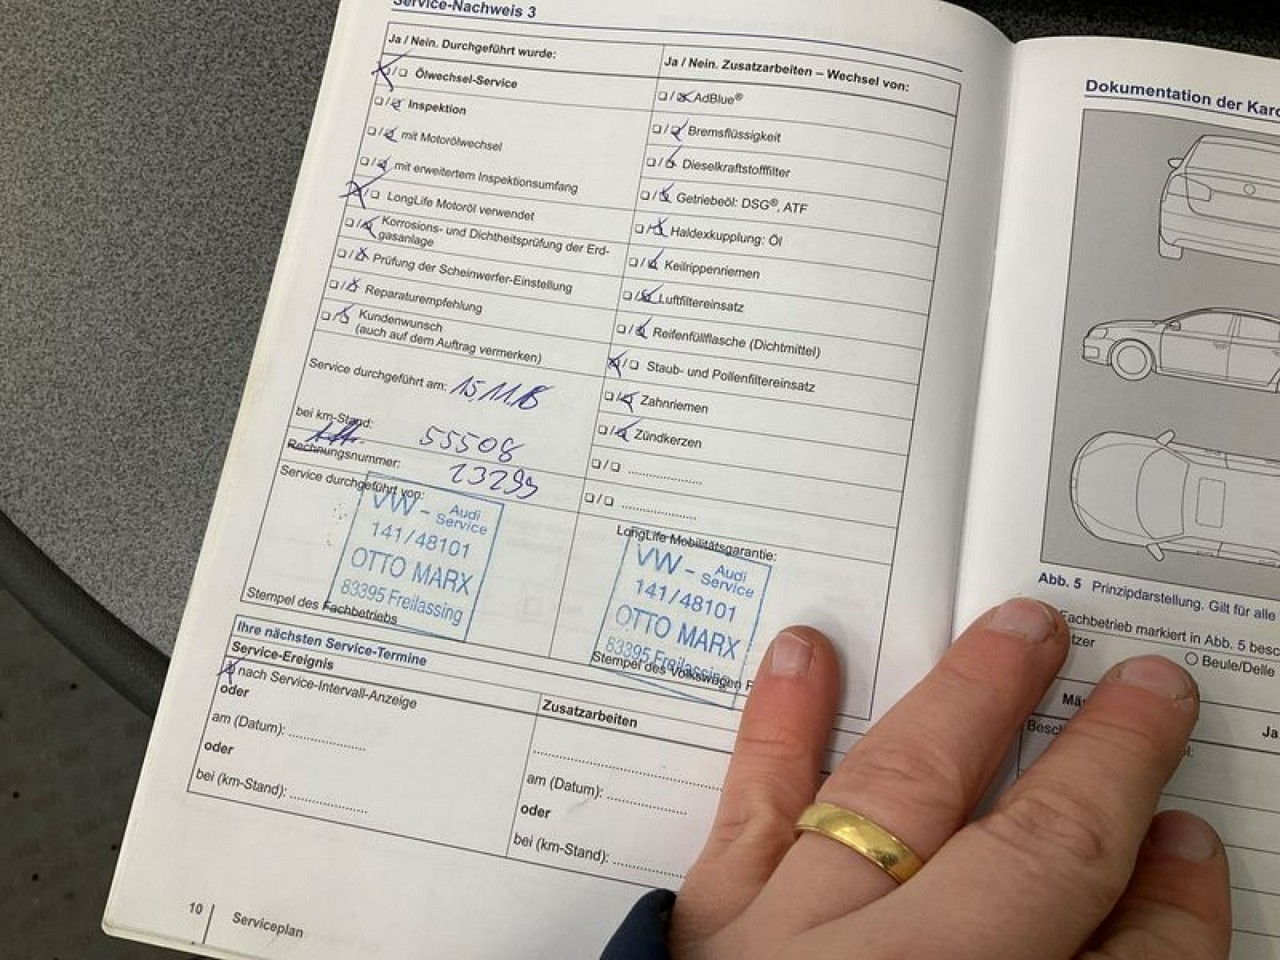 Service-Nachweis 3
Ja / Nein. Durchgeführt wurde:
☒/☐ Ölwechsel-Service
☐/☒ Inspektion
☐/☒ mit Motorölwechsel
☐/☒ mit erweitertem Inspektionsumfang
☒/☐ LongLife Motoröl verwendet
☐/☒ Korrosions- und Dichtheitsprüfung der Erd-
gasanlage
☐/☒ Prüfung der Scheinwerfer-Einstellung
☐/☒ Reparaturempfehlung
☐/☒ Kundenwunsch
(auch auf dem Auftrag vermerken)
Service durchgeführt am:
bei km-Stand: 55508
Rechnungsnummer: 23299
Service durchgeführt von:
VW - Audi
Service
141/48101
OTTO MARX
83395 Freilassing
Stempel des Fachbetriebs
Ja / Nein. Zusatzarbeiten – Wechsel von:
☐/☒ AdBlue®
☐/☒ Bremsflüssigkeit
☐/☒ Dieselkraftstofffilter
☐/☒ Getriebeöl: DSG®, ATF
☐/☒ Haldexkupplung: Öl
☐/☒ Keilrippenriemen
☐/☒ Luftfiltereinsatz
☐/☒ Reifenfüllflasche (Dichtmittel)
☒/☐ Staub- und Pollenfiltereinsatz
☐/☒ Zahnriemen
☐/☒ Zündkerzen
☐/☐ ....................
☐/☐ ....................
LongLife Mobilitätsgarantie:
VW - Audi
Service
141/48101
OTTO MARX
83395 Freilassing
Stempel des Volkswagen
Ihre nächsten Service-Termine
Service-Ereignis
☒ nach Service-Intervall-Anzeige
oder
am (Datum): ....................
oder
bei (km-Stand): ....................
Zusatzarbeiten
..................................................
am (Datum): ....................
oder
bei (km-Stand): ....................
10 | Serviceplan
Dokumentation der
Abb. 5 Prinzipdarstellung. Gilt für alle
Fachbetrieb markiert in Abb. 5
○ Beule/Delle
Ja